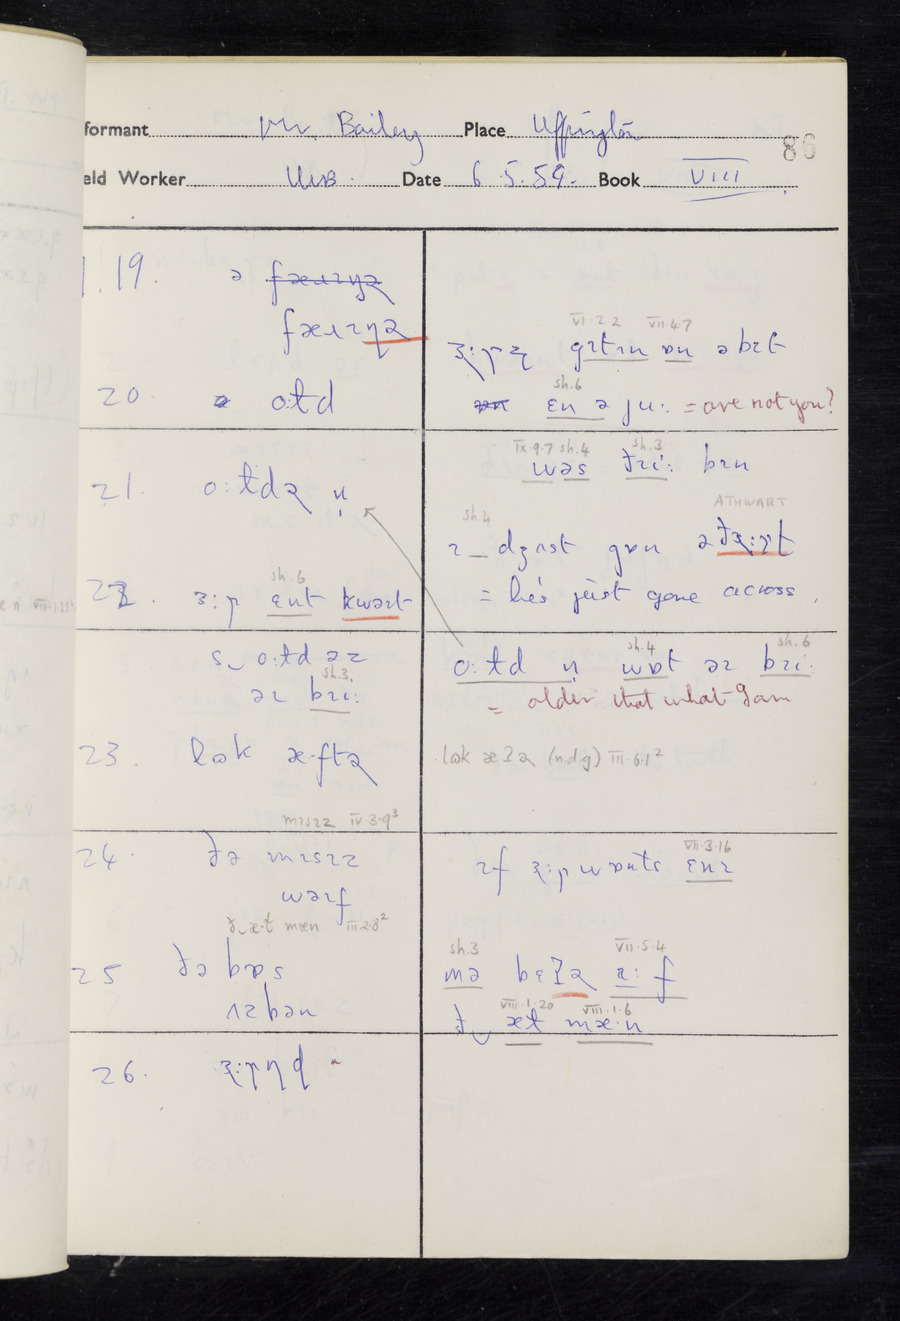 formant Mr. Bailey Place Uffington
86
eld Worker Date 6.5.59. Book VIII
1.19. ə
20. o:td
VI.2.2 VII.4.7
gɪtɪn ɒn ə bɪt
sh.6
ɛn ə ju: = are not you?
21. o:tdə n̩
IX.9.7 sh.4 sh.3
wəs ðɪi: bɪn
ATHWART
sh.4
ɪ_ dʒʌst gɒn
= he's just gone across.
22. sh.6
ɜ:ɽ ɛnt kwəɪt
s‿o:td əz
sh.3.
əɪ bɪi:
sh.4 sh.6
o:td n̩ wɒt əɪ bɪi:
= older that what I am
23. lʊk
lʊk (n.d.g) III.6.1²
mɪsɪz IV.3.9³
24. ðə mɪsɪz
wəɪf
VII.3.16
ɪf ɜ:ɽ wɒnts ɛnɪ
ð‿æ·t mæn III.2.8²
25 ðə bɒs
ʌzbən
sh.3 VII.5.4
mə bɛʔə f
VIII.1.20 VIII.1.6
ð‿æt mæ·n
26.